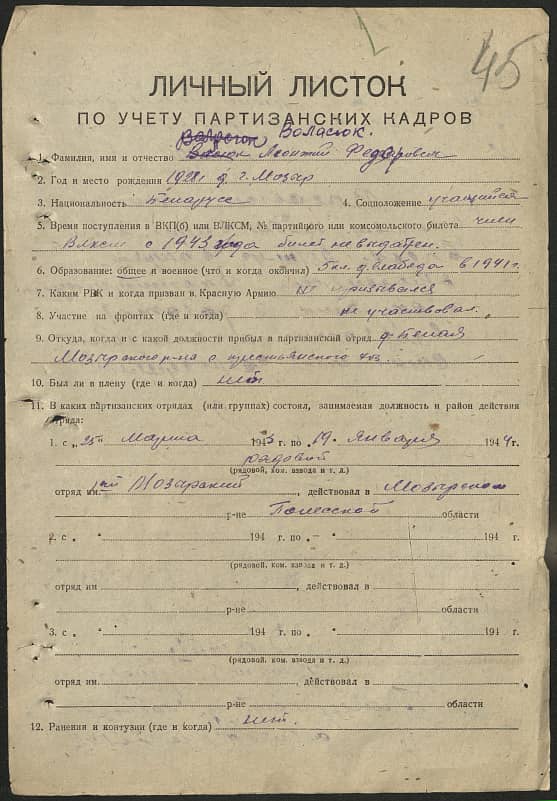 45
ЛИЧНЫЙ ЛИСТОК
ПО УЧЕТУ ПАРТИЗАНСКИХ КАДРОВ
Воласюк.
1. Фамилия, имя и отчество Леонтий Федорович
2. Год и место рождения 1928 г. г. Мозыр
3. Национальность Беларусс 4. Соцположение учащийся
5. Время поступления в ВКП(б) или ВЛКСМ, № партийного или комсомольского билета член
Влксм с 1943 года билет не выдавали.
6. Образование: общее и военное (что и когда окончил) 5 кл. д. слабода в 1941 г.
7. Каким РВК и когда призван в Красную Армию не призывался
8. Участие на фронтах (где и когда) не участвовал.
9. Откуда, когда и с какой должности прибыл в партизанский отряд
Мозырского р-на с крестьянского
10. Был ли в плену (где и когда) нет.
11. В каких партизанских отрядах (или группах) состоял, занимаемая должность и район действия
отряда:
1. с „25" Марта 1943 г. по „19" Января 1944 г.
рядовой
(рядовой, ком. взвода и т. д.)
отряд им. Мозарский, действовал в Мозырском
р-не Полесской области
2. с „ " 194 г. по „ " 194 г.
(рядовой, ком. взвода и т. д.)
отряд им , действовал в
р-не области
3. с „ " 194 г. по „ " 194 г.
(рядовой, ком. взвода и т. д.)
отряд им. , действовал в
р-не области
12. Ранения и контузии (где и когда) нет.